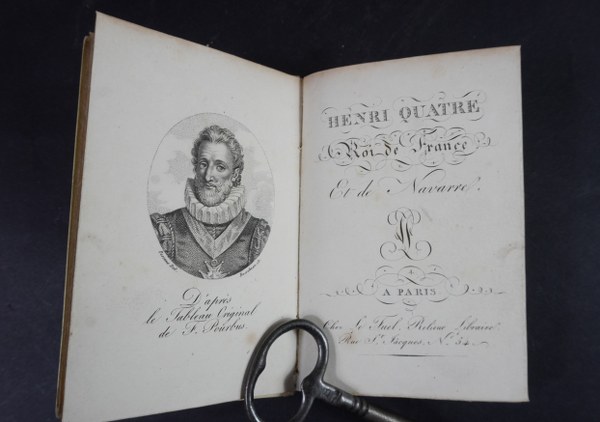 D'après
le Tableau Original
de F. Pourbus.
HENRI QUATRE
Roi de France
Et de Navarre.
A PARIS.
Chez Le Fuel, Relieur Libraire
Rue St. Jacques, No. 54.